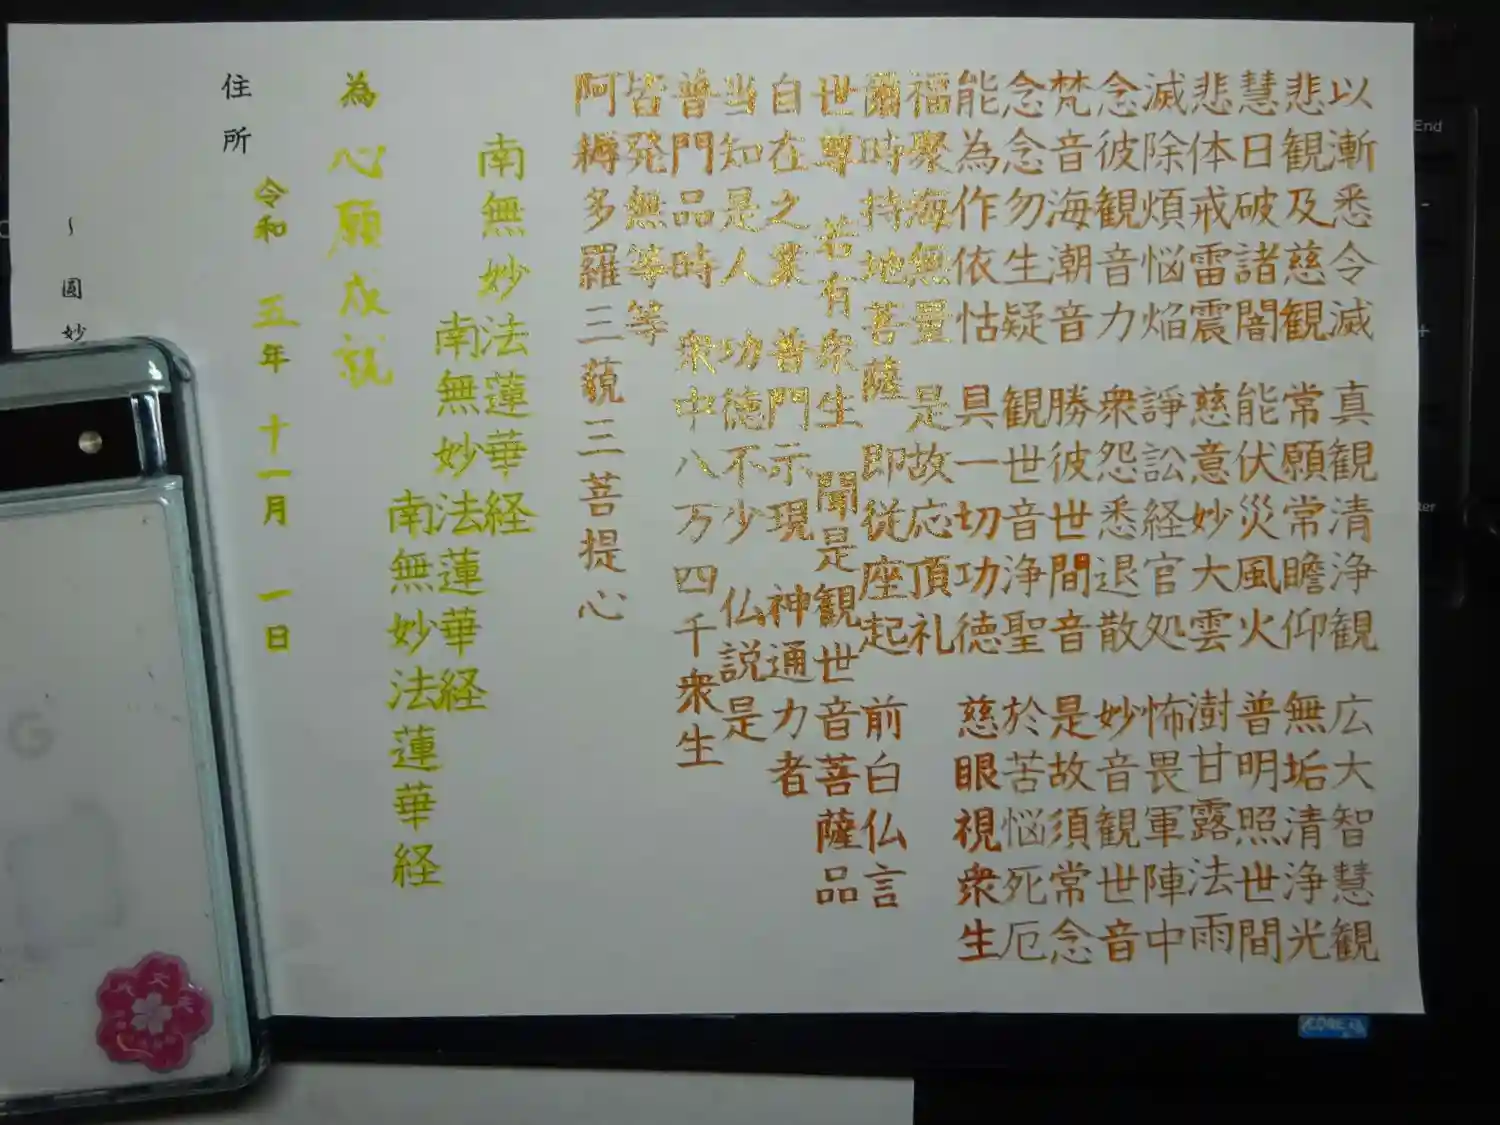 以漸悉令滅 真観清浄観 広大智慧観
悲観及慈観 常願常瞻仰 無垢清浄光
慧日破諸闇 能伏災風火 普明照世間
悲体戒雷震 慈意妙大雲 澍甘露法雨
滅除煩悩焔 諍訟経官処 怖畏軍陣中
念彼観音力 衆怨悉退散 妙音観世音
梵音海潮音 勝彼世間音 是故須常念
念念勿生疑 観世音浄聖 於苦悩死厄
能為作依怙 具一切功徳 慈眼視衆生
福聚海無量 是故応頂礼
爾時持地菩薩 即従座起 前白仏言
世尊 若有衆生 聞是観世音菩薩品
自在之業 普門示現 神通力者
当知是人 功徳不少 仏説是
普門品時 衆中八万四千衆生
皆発無等等
阿耨多羅三藐三菩提心
南無妙法蓮華経
南無妙法蓮華経
南無妙法蓮華経
為 心願成就
令和 五年 十一月 一日
住所
~圓妙
End
CORE i5
G